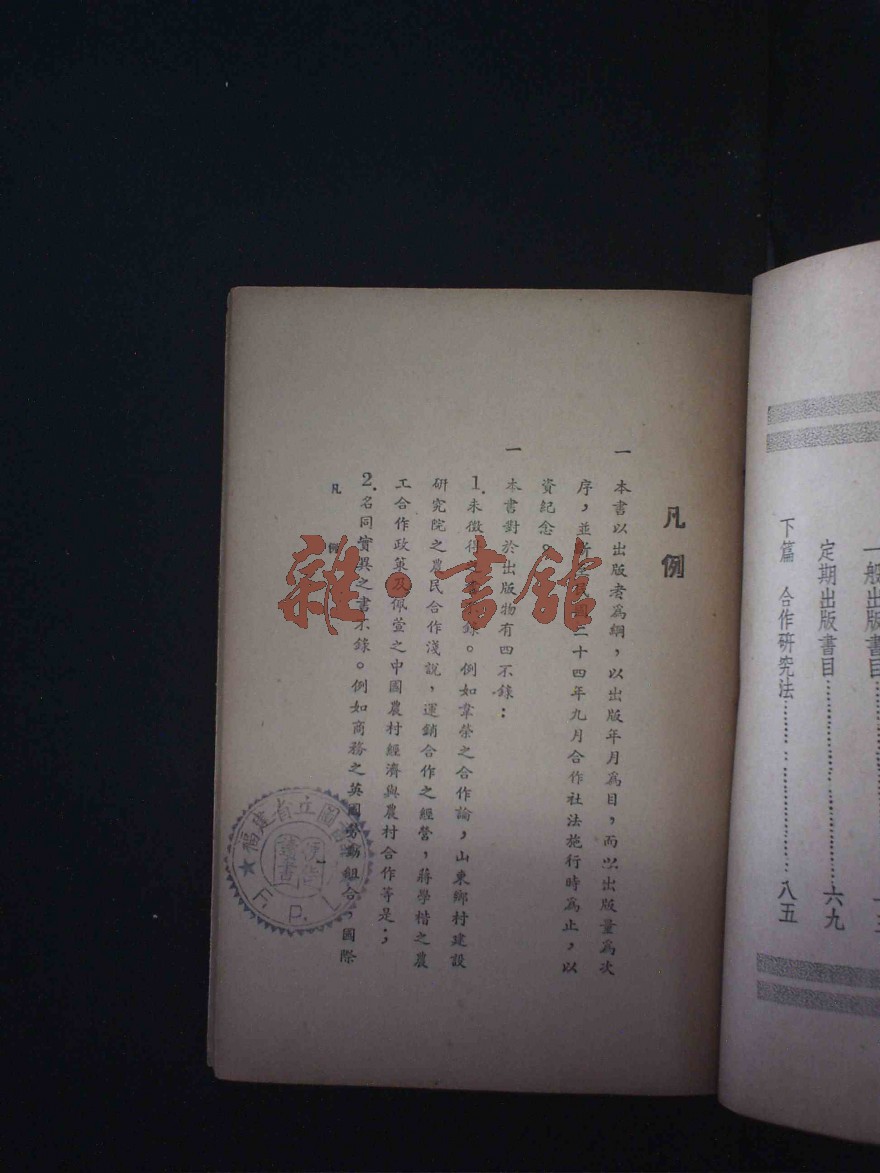 一般出版書目
定期出版書目………六九
下篇 合作研究法………八五
凡例
一 本書以出版者為綱,以出版年月為目,而以出版量為次
序,並 二十四年九月合作社法施行時為止,以
資紀念。
一 本書對於出版物有四不錄:
1.未徵得 錄。例如韋榮之合作論,山東鄉村建設
研究院之農民合作淺說,運銷合作之經營,蔣學楷之農
工合作政策及佩萱之中國農村經濟與農村合作等是;
2.名同實異之書不錄。例如商務之英國勞動組合,國際
凡 例
雜·書館
福建省立圖書館
F. P. L